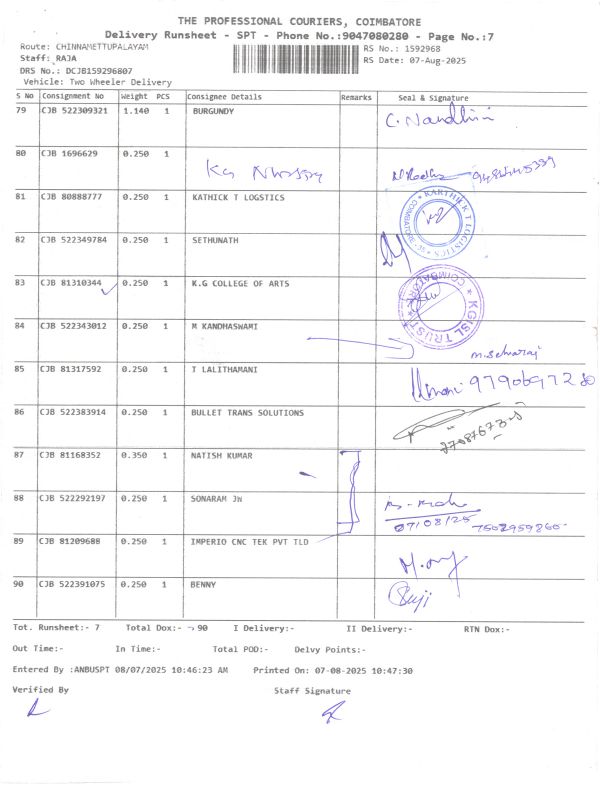 THE PROFESSIONAL COURIERS, COIMBATORE
Delivery Runsheet - SPT - Phone No.:9047080280 - Page No.:7
Route: CHINNAMETTUPALAYAM
RS No.: 1592968
Staff: RAJA
RS Date: 07-Aug-2025
DRS No.: DCJB159296807
Vehicle: Two Wheeler Delivery
S No Consignment No Weight PCS Consignee Details Remarks Seal & Signature
79 CJB 522309321 1.140 1 BURGUNDY C. Nandhini
80 CJB 1696629 0.250 1
81 CJB 80888777 0.250 1 KATHICK T LOGSTICS
KARTHICK T LOGISTICS
82 CJB 522349784 0.250 1 SETHUNATH
83 CJB 81310344 0.250 1 K.G COLLEGE OF ARTS
KGISL TRUST
84 CJB 522343012 0.250 1 M KANDHASWAMI
M. Selvaraj
85 CJB 81317592 0.250 1 T LALITHAMANI
86 CJB 522383914 0.250 1 BULLET TRANS SOLUTIONS
87 CJB 81168352 0.350 1 NATISH KUMAR
88 CJB 522292197 0.250 1 SONARAM JW
07/08/25
89 CJB 81209688 0.250 1 IMPERIO CNC TEK PVT TLD
90 CJB 522391075 0.250 1 BENNY Suji
Tot. Runsheet:- 7 Total Dox:- 90 I Delivery:- II Delivery:- RTN Dox:-
Out Time:- In Time:- Total POD:- Delvy Points:-
Entered By :ANBUSPT 08/07/2025 10:46:23 AM Printed On: 07-08-2025 10:47:30
Verified By Staff Signature